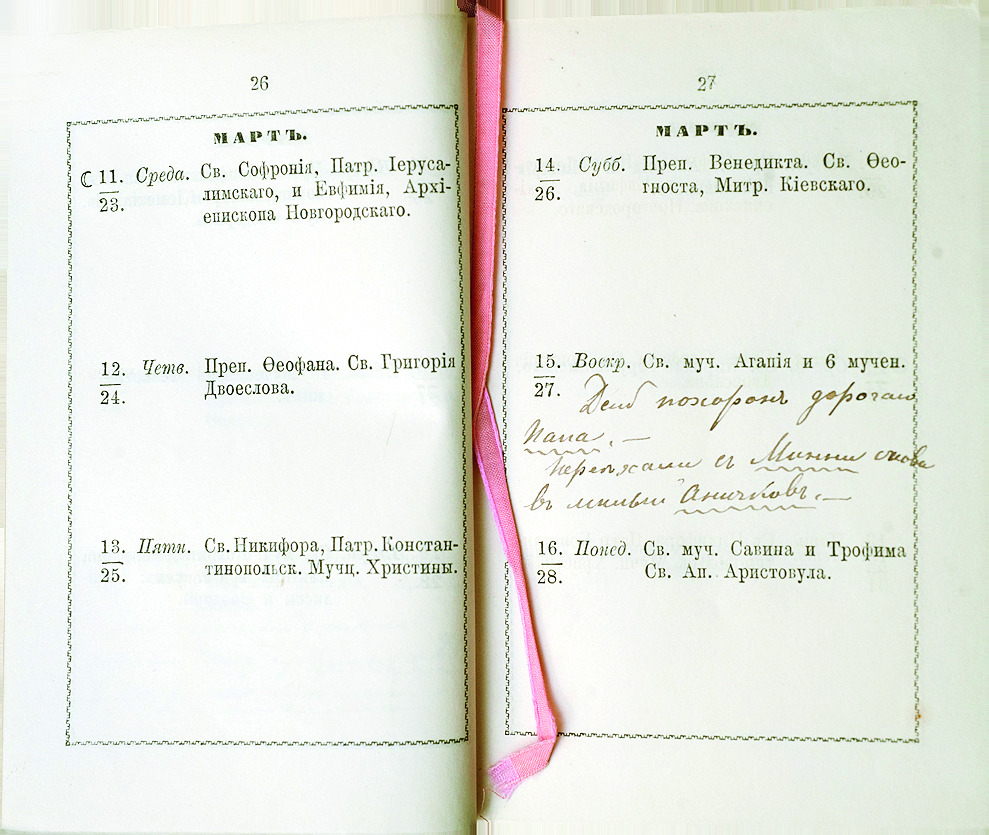 26
МАРТЪ.
☾ 11. Среда. Св. Софронія, Патр. Іеруса-
23. лимскаго, и Евфимія, Архі-
епископа Новгородскаго.
12. Четв. Преп. Ѳеофана. Св. Григорія
24. Двоеслова.
13. Пятн. Св. Никифора, Патр. Констан-
25. тинопольск. Мучц. Христины.
27
МАРТЪ.
14. Субб. Преп. Венедикта. Св. Ѳео-
26. гноста, Митр. Кіевскаго.
15. Воскр. Св. муч. Агапія и 6 мучен.
27. День похоронъ дорогаго
Папа. —
Переѣхали съ Минни снова
въ милый Аничковъ. —
16. Понед. Св. муч. Савина и Трофима
28. Св. Ап. Аристовула.